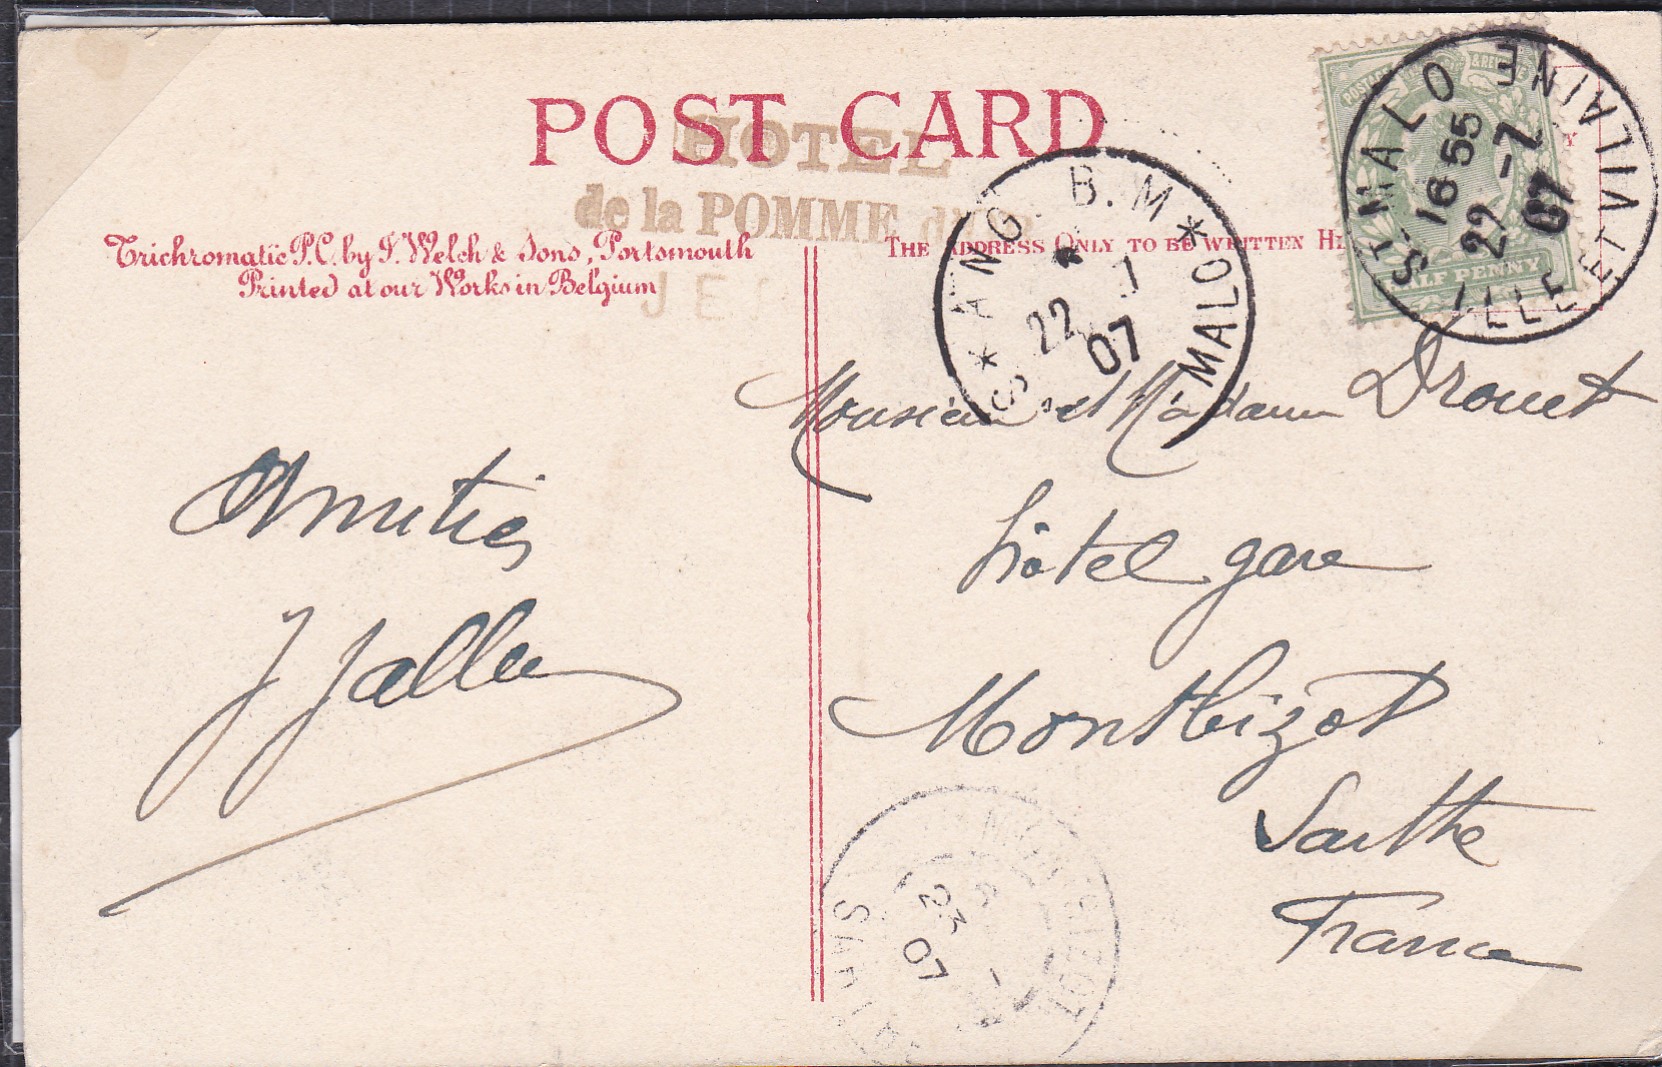 POST CARD
HOTEL
de la POMME d'OR
JE
Trichromatic P.C. by J. Welch & Sons, Portsmouth
Printed at our Works in Belgium
THE ADDRESS ONLY TO BE WRITTEN HE
POSTAGE & REVENUE
HALF PENNY
ST-MALO
ILLE-ET-VILAINE
16 55
22 -7
07
ANG. B.M
ST-MALO
22 7
07
Monsieur et Madame Drouet
hôtel gare
Montbizot
Sarthe
France
Amitiés
J Jallu
MONTBIZOT
SARTHE
23
07